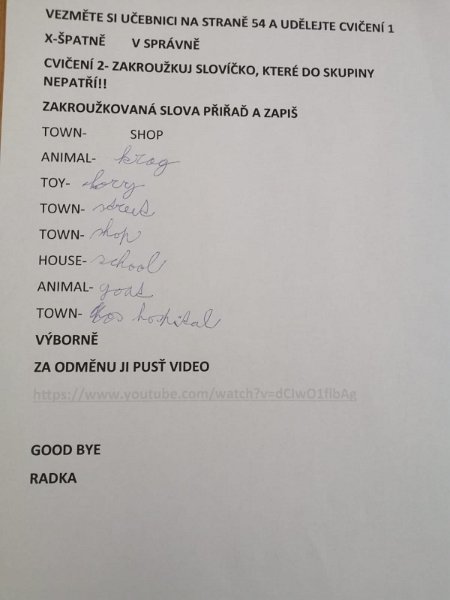 VEZMĚTE SI UČEBNICI NA STRANĚ 54 A UDĚLEJTE CVIČENÍ 1
X-ŠPATNĚ V SPRÁVNĚ
CVIČENÍ 2- ZAKROUŽKUJ SLOVÍČKO, KTERÉ DO SKUPINY
NEPATŘÍ!!
ZAKROUŽKOVANÁ SLOVA PŘIŘAĎ A ZAPIŠ
TOWN- SHOP
ANIMAL- krog
TOY- lorry
TOWN- street
TOWN- shop
HOUSE- school
ANIMAL- goat
TOWN- hospital
VÝBORNĚ
ZA ODMĚNU JI PUSŤ VIDEO
https://www.youtube.com/watch?v=dClwO1flbAg
GOOD BYE
RADKA